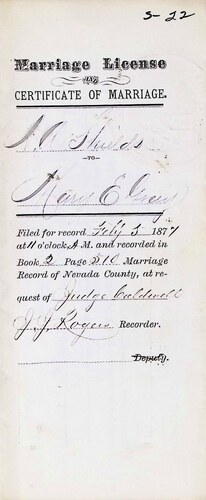 S-22
Marriage License
AND
CERTIFICATE OF MARRIAGE.
Shields
—TO—
E
Filed for record Feby 5 1877
at 11 o'clock, A M. and recorded in
Book, 2 Page 510 Marriage
Record of Nevada County, at re-
quest of Judge Caldwell
J. J. Rogers Recorder.
Deputy.